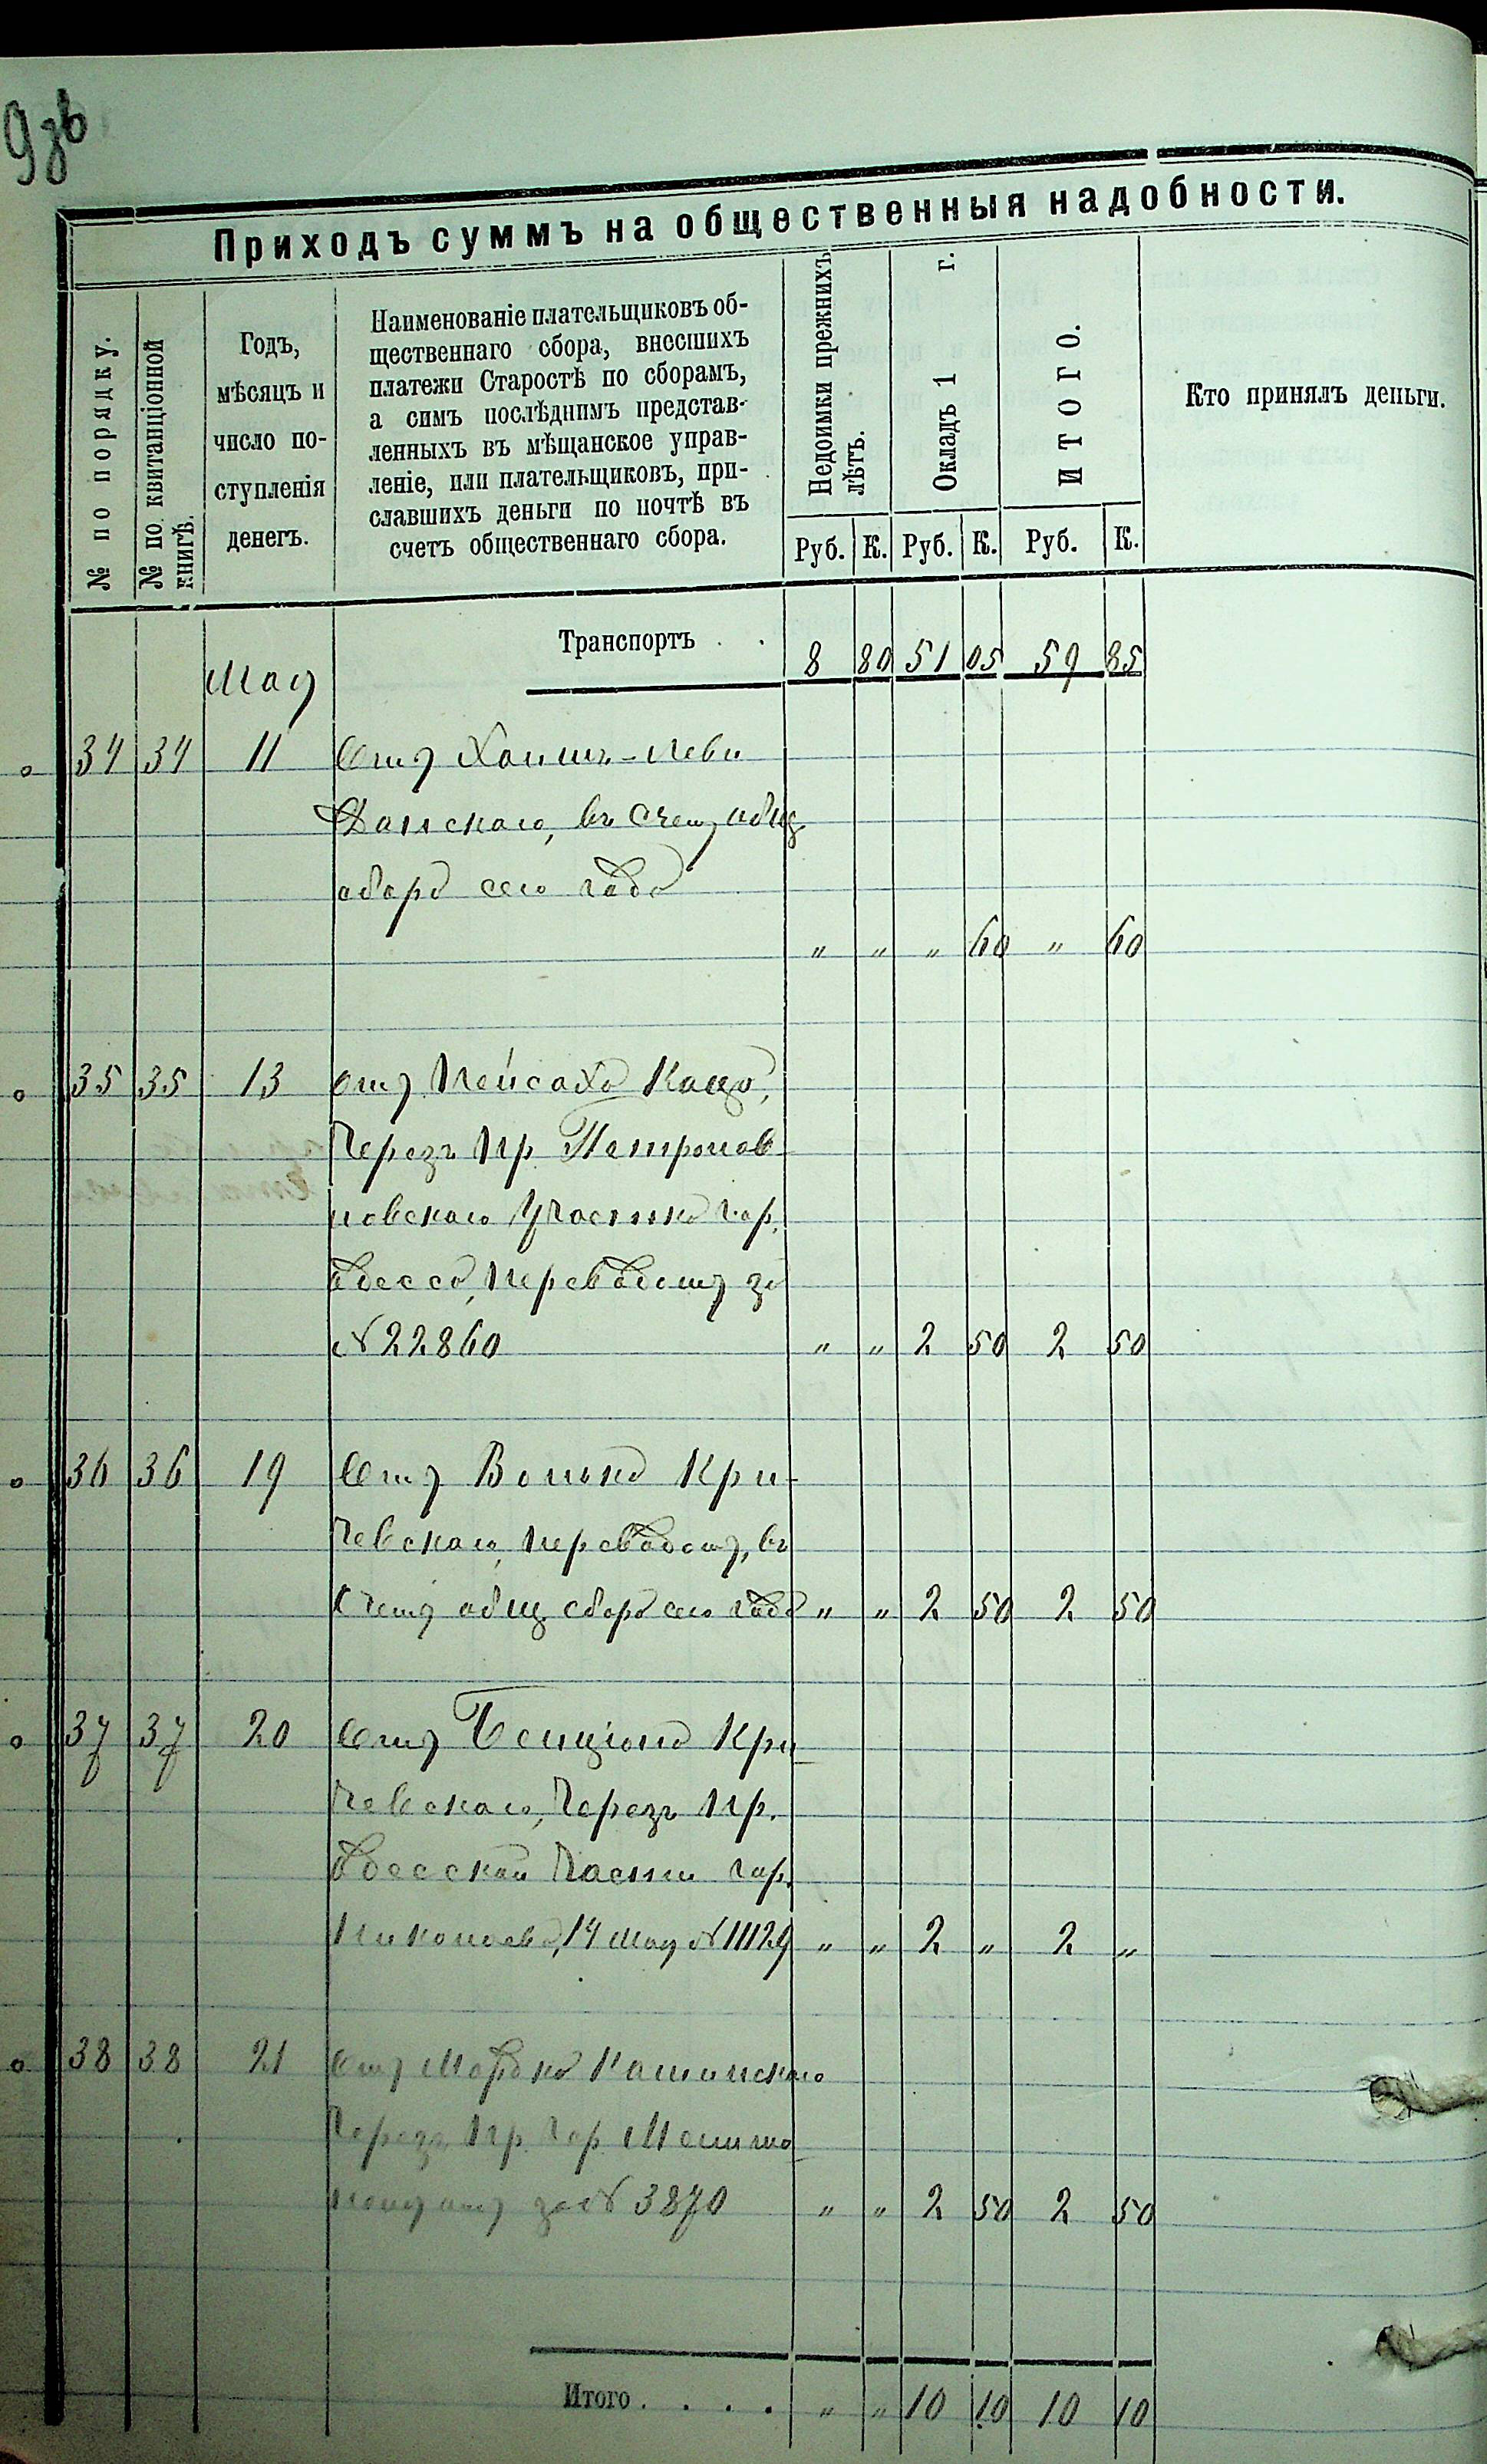 9зв
Приходъ суммъ на общественныя надобности.
№ по порядку.
№ по квитанціонной книгѣ.
Годъ,
мѣсяцъ и
число по-
ступленія
денегъ.
Наименованіе плательщиковъ об-
щественнаго сбора, внесшихъ
платежи Старостѣ по сборамъ,
а симъ послѣднимъ представ-
ленныхъ въ мѣщанское управ-
леніе, или плательщиковъ, при-
славшихъ деньги по почтѣ въ
счетъ общественнаго сбора.
Недоимки прежнихъ лѣтъ.
Окладъ 1 г.
ИТОГО.
Кто принялъ деньги.
Руб. К. Руб. К. Руб. К.
Транспортъ . . 8 80 51 05 59 85
Мая
34 34 11 Отъ Хаимъ-Леви
Данскаго, въ счетъ общ
сбора сего года
" " " 60 " 60
35 35 13 отъ Пейсаха Каца,
Черезъ Пр. Петропав
ловскаго Участка гор.
Одесса, переводомъ за
№ 22860 " " 2 50 2 50
36 36 19 Отъ Волька Кри-
чевскаго, переводомъ, въ
Счетъ общ сбора сего года " " 2 50 2 50
37 37 20 Отъ Бенціона Кри-
чевскаго, Черезъ Пр.
Одесской Части гор.
Николаева, 14 Мая № 11129 " " 2 " 2 "
38 38 21 Отъ Мордка Кашинскаго
Черезъ Пр. Гор. Мелито
за № 3870 " " 2 50 2 50
Итого . . . . " " 10 10 10 10